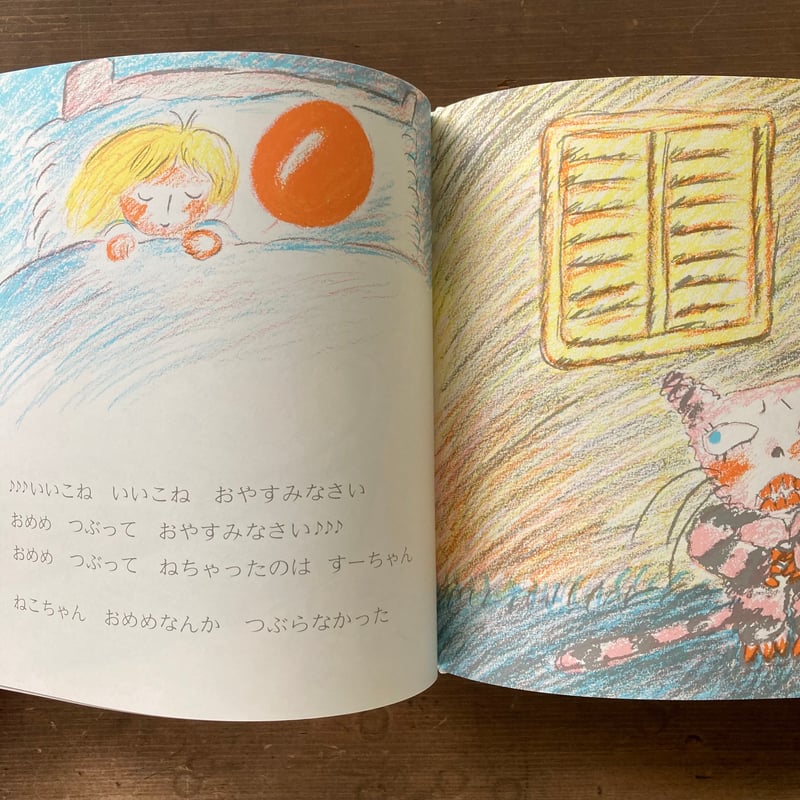 ♪♪♪いいこね　いいこね　おやすみなさい
おめめ　つぶって　おやすみなさい♪♪♪
おめめ　つぶって　ねちゃったのは　すーちゃん
ねこちゃん　おめめなんか　つぶらなかった